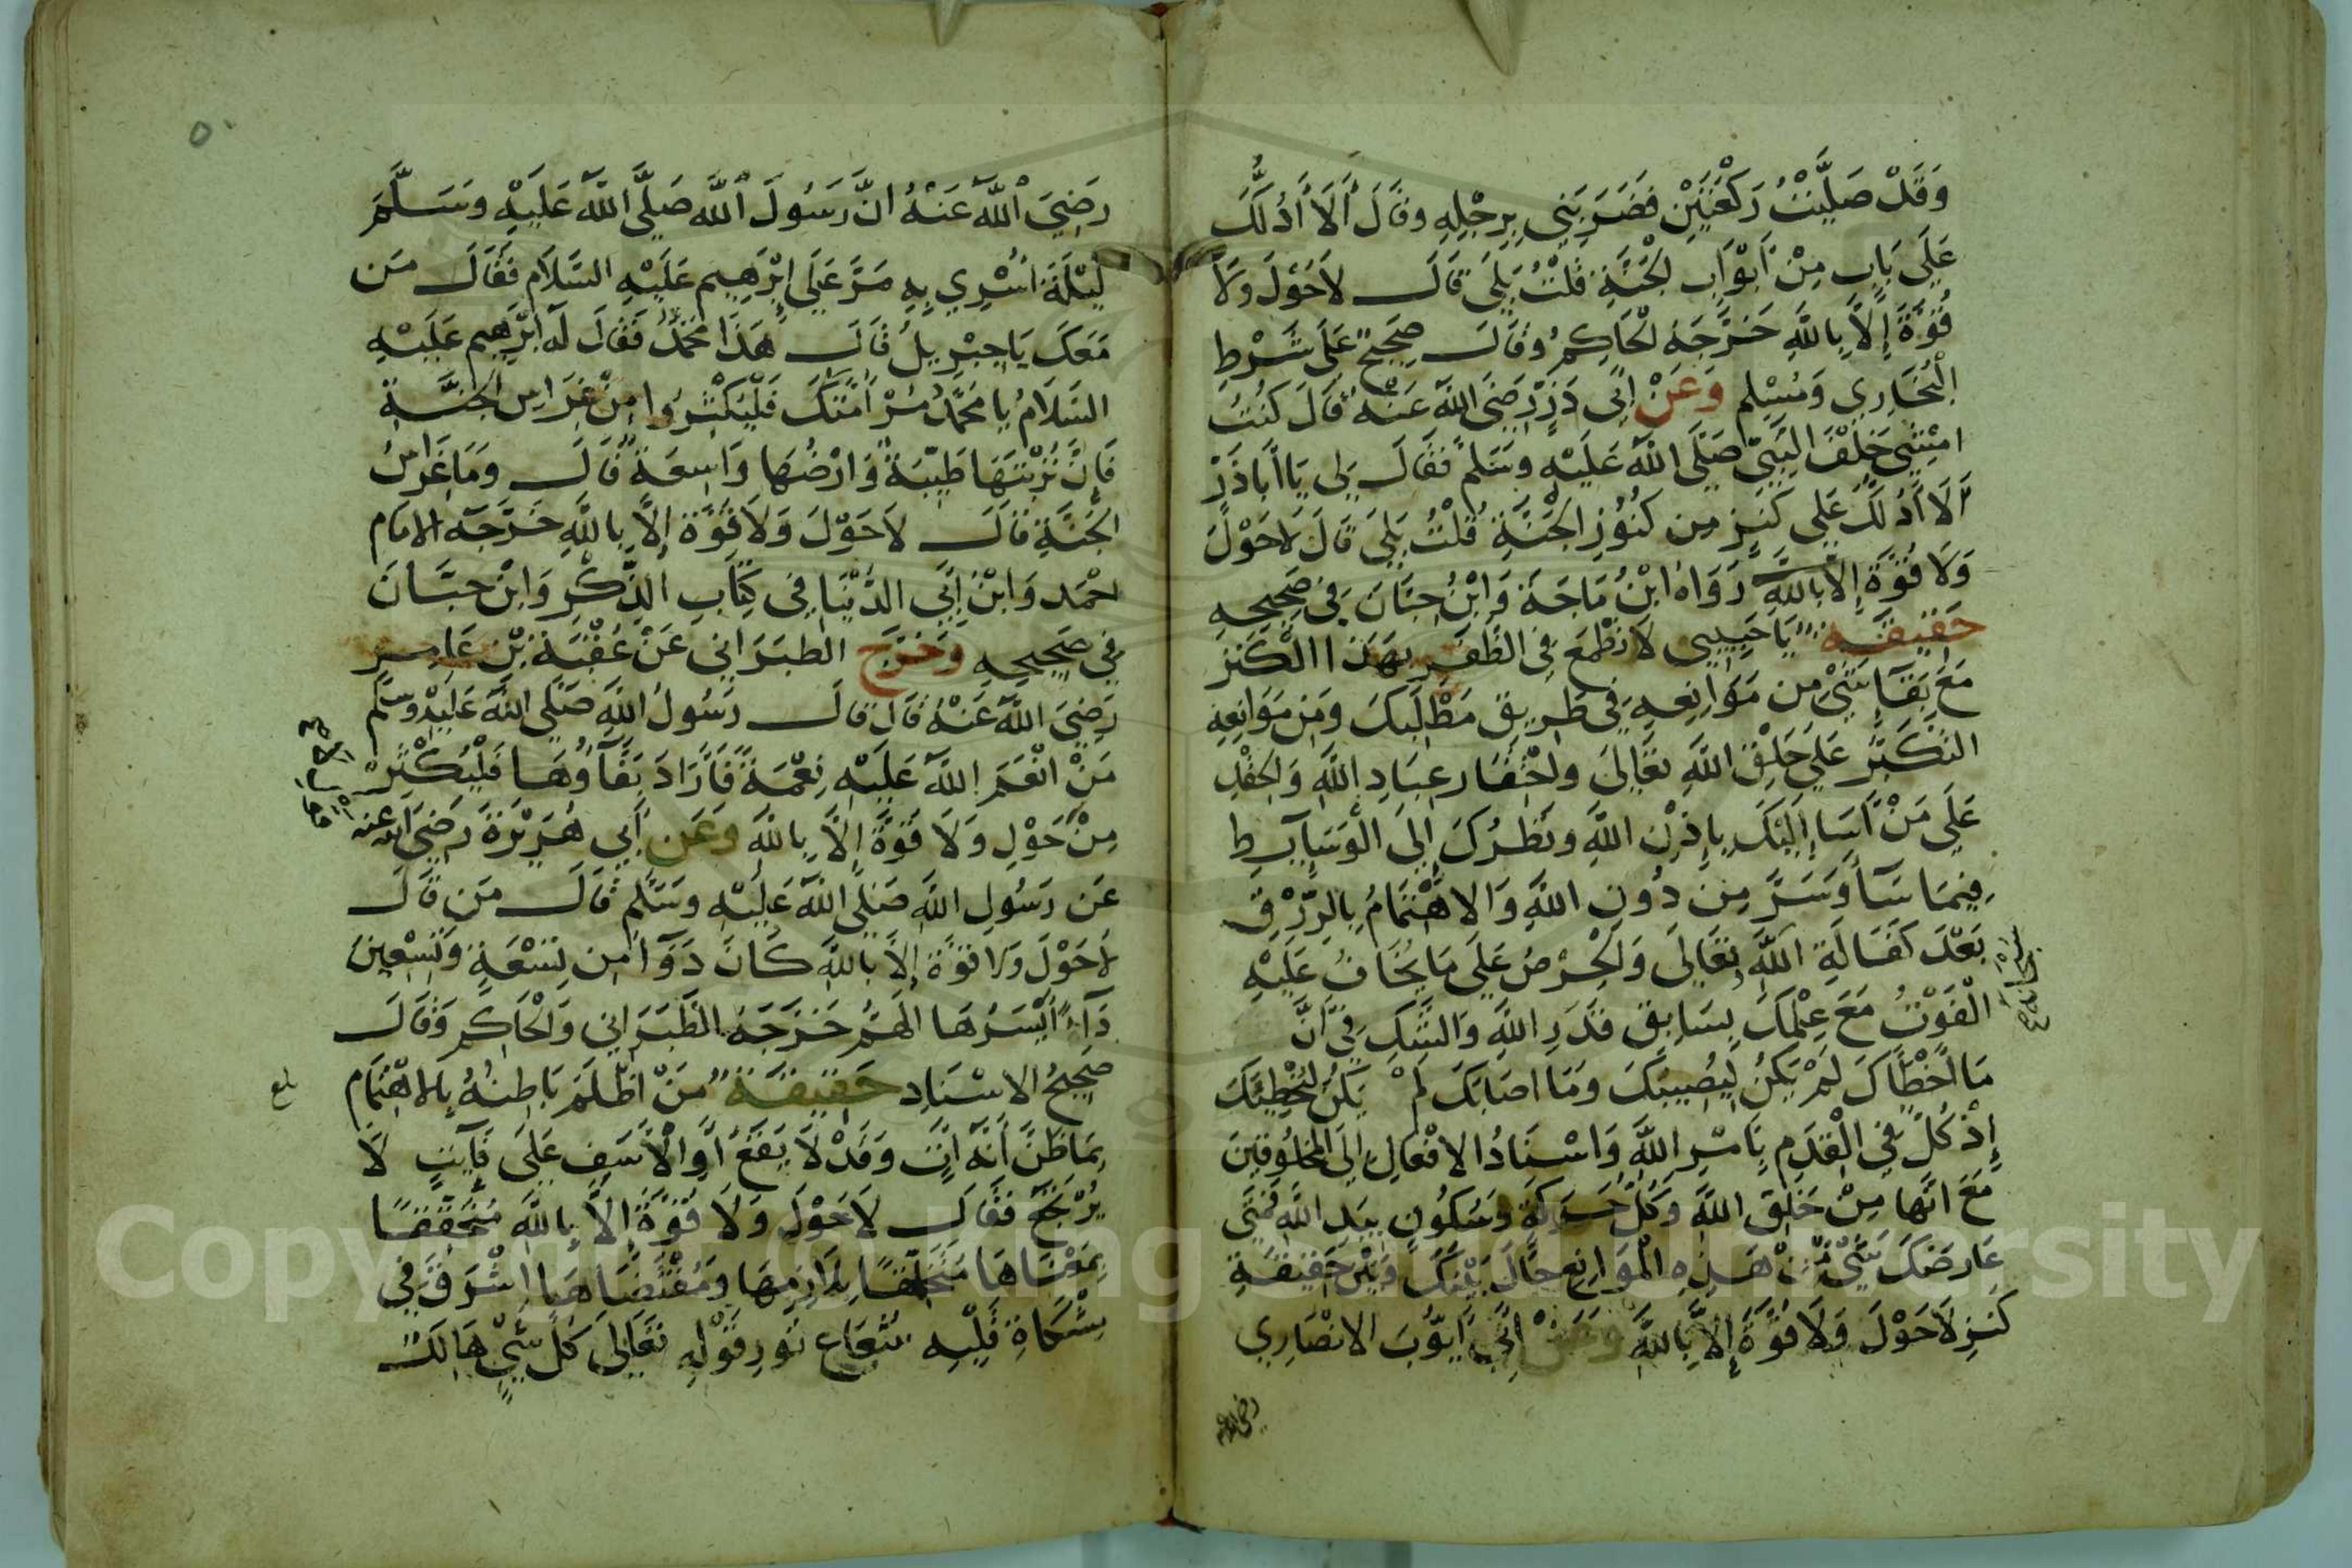 وَقَدْ صَلَّيْتُ رَكْعَتَيْنِ فَضَرَبَنِي بِرِجْلِهِ وقَالَ أَلَا أَدُلُّكَ
عَلَى بَابٍ مِنْ أَبْوَابِ الجَنَّةِ قُلْتُ بَلَى قَالَ لَا حَوْلَ وَلَا
قُوَّةَ إِلَّا بِاللَّهِ خَرَّجَهُ الْحَاكِمُ وقَالَ صَحِيحٌ عَلَى شَرْطِ
الْبُخَارِي وَمُسْلِم وَعَنْ ابِي ذَرٍّ رَضِيَ اللَّهُ عَنْهُ قَالَ كُنْتُ
امْشِي خَلْفَ النَّبِيِّ صَلَّى اللَّهُ عَلَيْهِ وسَلَّمَ فَقَالَ لِي يَا أَبَا ذَرّ
أَلَا أَدُلُّكَ عَلَى كَنْزٍ مِن كُنُوزِ الجَنَّةِ قُلْتُ بَلَى قَالَ لَا حَوْلَ
وَلَا قُوَّةَ إِلَّا بِاللَّهِ رَوَاهُ ابْنُ مَاجَةَ وَابْنُ حِبَّانَ فِي صَحِيحِهِ
حَقِيقَة يَا حَبِيبِي لَا تَطْمَعْ فِي الظَّفَرِ بِهَذَا الْكَنْزِ
مَعَ بَقَآءِ شَيْءٍ مِن مَوَانِعِهِ فِي طَرِيقِ مَطْلَبِكَ وَمِن مَوَانِعِهِ
التَّكَبُّر عَلَى خَلْقِ اللَّهِ تَعَالَى واحْتِقَار عِبَادِ اللَّهِ وَالحِقْدِ
عَلَى مَنْ أَسَا إِلَيْكَ بِإِذْنِ اللَّهِ ونَظَرُكَ إِلَى الْوَسَآئِطِ
فِيمَا سَآءَ وَسَرَّ مِن دُونِ اللَّهِ وَالاهْتِمَامُ بِالرِّزْقِ
بَعْدَ كَفَالَةِ اللَّهِ تَعَالَى وَالحِرْصُ عَلَى مَا يُخَافُ عَلَيْهِ
الْفَوْتُ مَعَ عِلْمِكَ بِسَابِقِ قَدَرِ اللَّهِ وَالشَّكِ فِي أَنَّ
مَا أَخْطَأَكَ لَمْ يَكُنْ لِيُصِيبَكَ وَمَا اصَابَكَ لَمْ يَكُنْ لِيُخْطِئَكَ
إِذْ كُلٌّ فِي الْقِدَمِ بِأَمْرِ اللَّهِ وَاسْنَادُ الافْعَالِ إِلَى المَخْلُوقِينَ
مَعَ انَّهَا مِنْ خَلْقِ اللَّهِ وَكُلُّ حَرَكَةٍ وَسُكُونٍ بِيَدِ اللَّهِ فَمَتَى
عَارَضَكَ شَيْءٌ مِّنْ هَذِهِ الْمَوَانِعِ حَالَ بَيْنَكَ وَبَيْنَ حَقِيقَةِ
كَنْزِ لَا حَوْلَ وَلَا قُوَّةَ إِلَّا بِاللَّهِ وَعَنْ ابِي أَيُّوبَ الانْصَارِي
رضي الله
رَضِيَ اللَّهُ عَنْهُ انَّ رَسُولَ اللَّهِ صَلَّى اللَّهُ عَلَيْهِ وَسَلَّمَ
لَيْلَةَ اسْرِيَ بِهِ مَرَّ عَلَى إِبْرَهِيم عَلَيْهِ السَّلَام فَقَالَ مَن
مَعَكَ يَا جِبْرِيلُ قَالَ هَذَا مُحَمَّدٌ فَقَالَ لَهُ ابْرَهِيم عَلَيْهِ
السَّلَامُ يَا مُحَمَّدُ مُرْ امَّتَكَ فَلْيُكْثِرُوا مِنْ غِرَاسِ الجَنَّةِ
فَإِنَّ تُرْبَتَهَا طَيِّبَةٌ وَارْضُهَا وَاسِعَةٌ قَالَ وَمَا غِرَاسُ
الجَنَّةِ قَالَ لَا حَوْلَ وَلَا قُوَّةَ إِلَّا بِاللَّهِ خَرَّجَهُ الامَام
احْمَد وَابْنُ ابِي الدُّنْيَا فِي كِتَابِ الذِّكْرِ وَابْنُ حبَّانَ
فِي صَحِيحِهِ وَخَرَّجَ الطَبَرَانِي عَنْ عُقْبَةَ بْنِ عَامِرٍ
رَضِيَ اللَّهُ عَنْهُ قَالَ قَالَ رَسُولُ اللَّهِ صَلَّى اللَّهُ عَلَيْهِ وسَلَّم
مَنْ انْعَمَ اللَّهُ عَلَيْهِ نِعْمَةً فَأَرَادَ بَقَآءَهَا فَلْيُكْثِرْ
مِنْ حَوْلِ وَلَا قُوَّةَ إِلَّا بِاللَّهِ وَعَن أَبِي هُرَيْرَةَ رَضِيَ الله عنه
عَن رَسُولِ اللَّهِ صَلَّى اللَّهُ عَلَيْهِ وسَلَّم قَالَ مَن قَالَ
لَا حَوْلَ ولا قوَّةَ إلَّا بِاللَّهِ كَانَ دَوَآءً مِن تِسْعَةٍ وَتِسْعِينَ
دَآءً أَيْسَرُهَا الْهَمُّ خَرَّجَهُ الطَّبَرَانِي وَالْحَاكِم وَقَالَ
صَحِيحُ الاسْنَادِ حَقِيقَة مَنْ اظْلَمَ بَاطِنُهُ بِالاهْتِمَام
بِمَا ظَنَّ أَنَّهُ اتٍ وَقَدْ لَا يَقَعُ أَوِ الْأَسَفِ عَلَى فَآئِتٍ لَا
يُرْتَجَعُ فَقَالَ لَا حَوْلَ وَلَا قُوَّةَ إِلَّا بِاللَّهِ مُتَحَقِّقًا
بِمَعْنَاهَا مُتَخَلِّقًا بِلَوَازِمِهَا وَمُقْتَضَاهَا اشْرَقَ فِي
مِشْكَاةِ قَلْبِهِ شُعَاعُ نُورِ قَوْلِهِ تَعَالَى كُلُّ شَيْءٍ هَالِكٌ
بلغ
Copyright © King Saud University